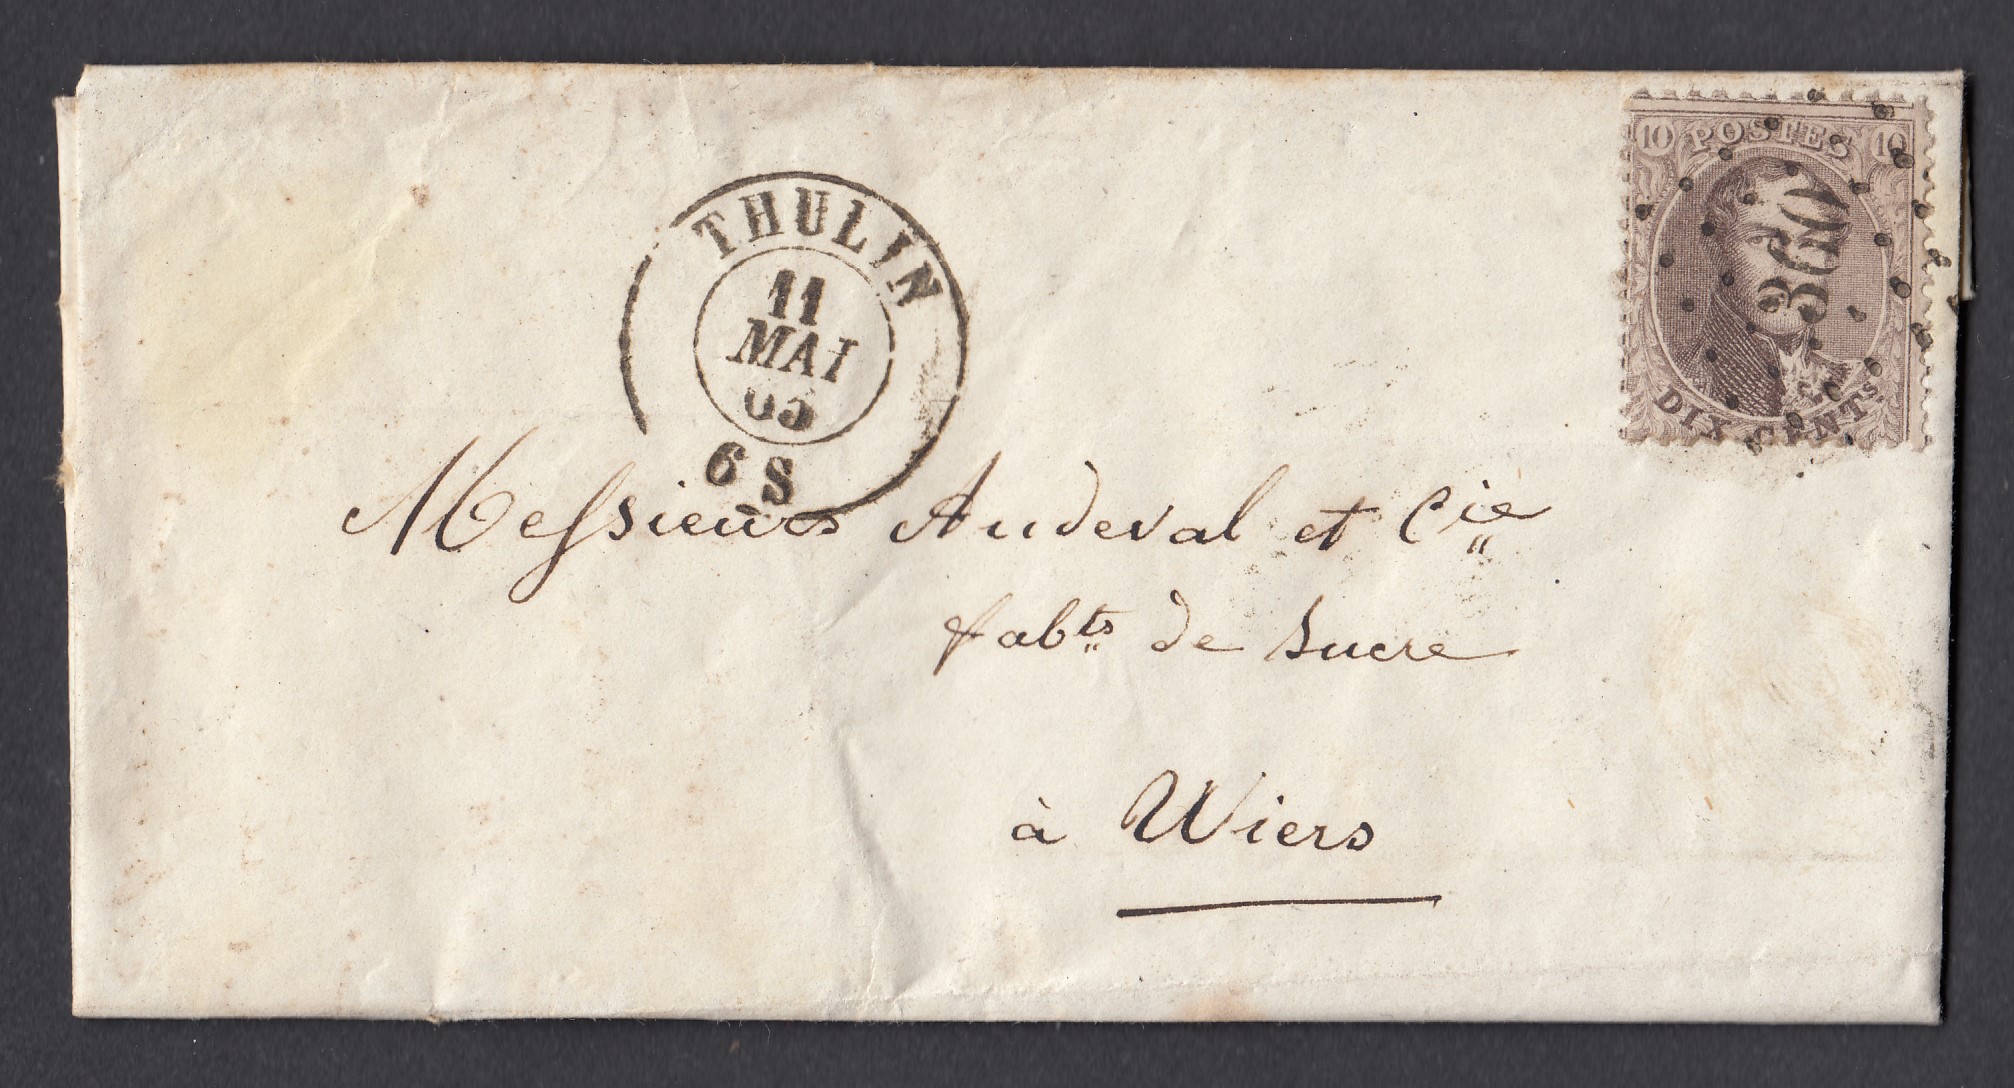 10 POSTES 10
360
DIX CENTS
THULIN
11
MAI
65
6 S
Messieurs Audeval et Cie
fabts de Sucre
à Wiers